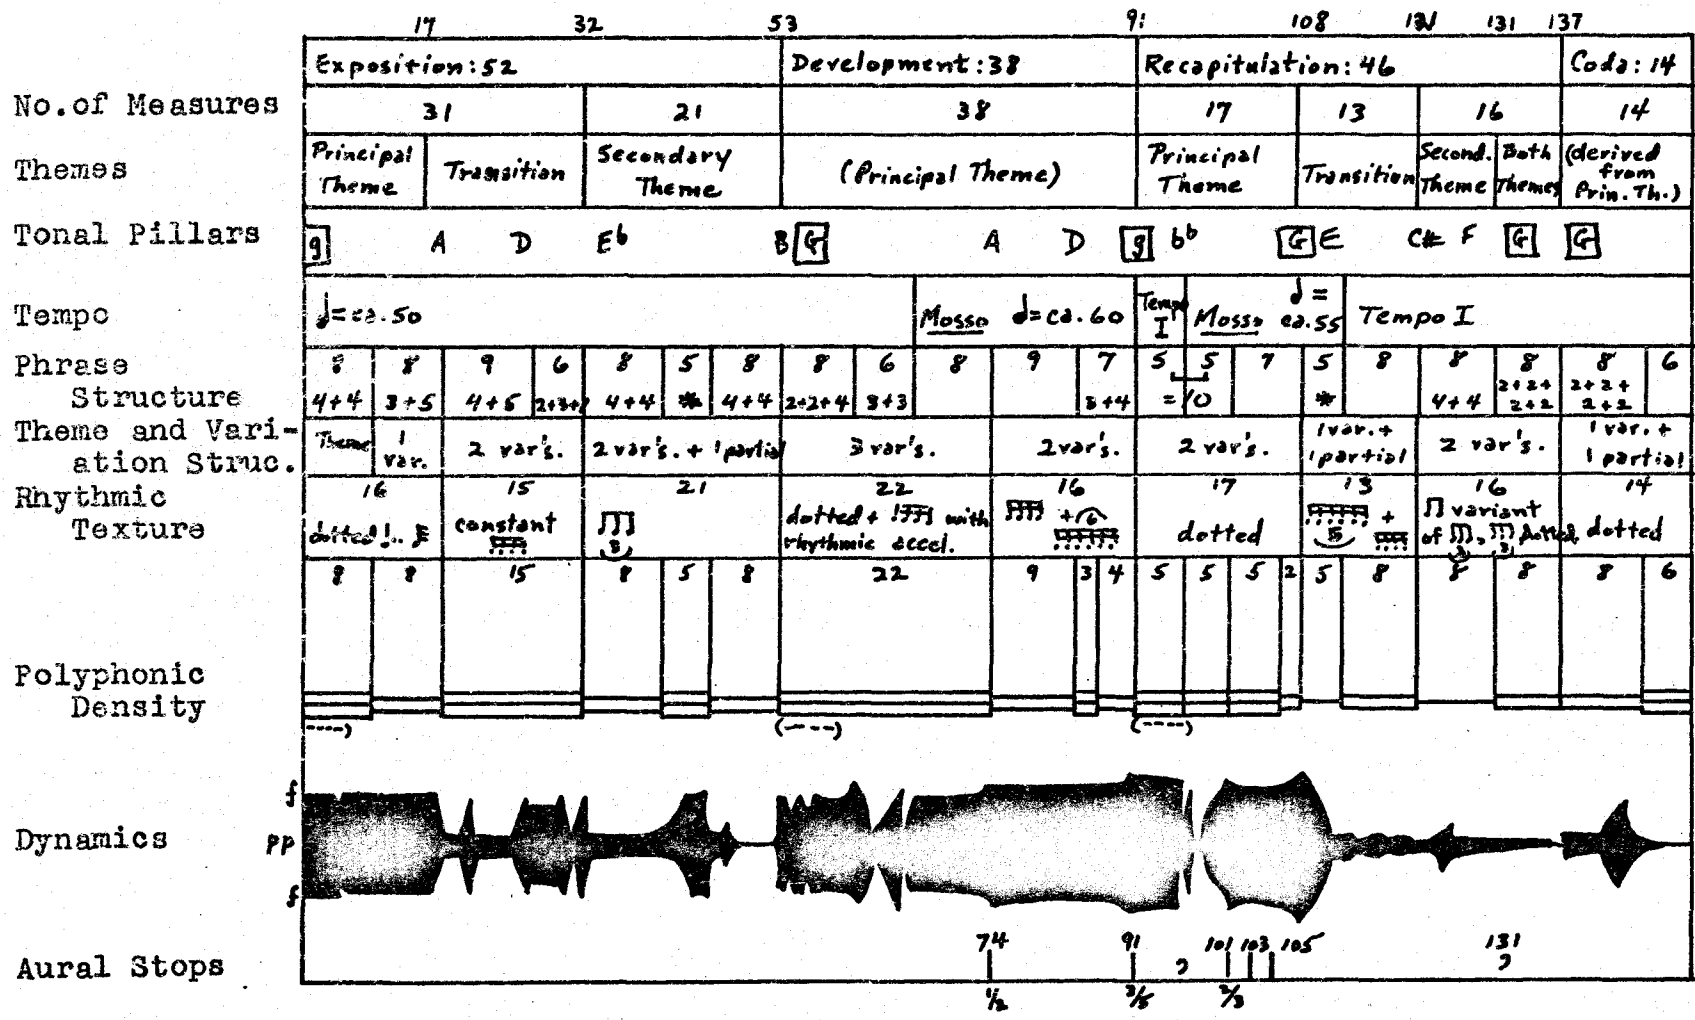 17 32 53 91 108 121 131 137
Exposition: 52 Development: 38 Recapitulation: 46 Coda: 14
No. of Measures 31 21 38 17 13 16 14
Themes Principal Theme Transition Secondary Theme (Principal Theme) Principal Theme Transition Second. Theme Both Themes (derived from Prin. Th.)
Tonal Pillars g A D Eb B G A D g bb G E C# F G G
Tempo ♩=ca. 50 Mosso ♩=ca. 60 Tempo I Mosso ♩= ca. 55 Tempo I
Phrase 8 8 9 6 8 5 8 8 6 8 9 7 5 5 7 5 8 8 8 8 6
Structure 4+4 3+5 4+5 4+4 * 4+4 2+2+4 3+3 3+4 =10 * 4+4 2+2+2+2 2+2+2+2
Theme and Vari-
ation Struc. Theme 1 var. 2 var's. 2 var's. + 1 partial 3 var's. 2 var's. 2 var's. 1 var. + 1 partial 2 var's. 1 var. + 1 partial
Rhythmic 16 15 21 22 16 17 13 16 14
Texture dotted constant 3 dotted + with rhythmic accel. + 6 dotted 5 + variant of 3, 3 dotted dotted
8 8 15 8 5 8 22 9 3 4 5 5 5 2 5 8 8 8 8 6
Polyphonic
Density
(----) (----) (----)
f
Dynamics pp
f
Aural Stops 74 91 ? 101 103 105 131 ?
1/2 3/5 2/3